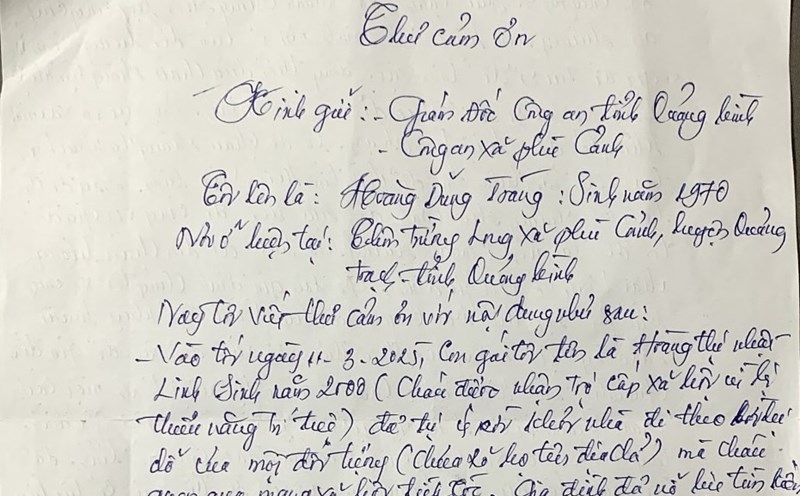 Thư cảm ơn
Kính gửi: - Giám đốc Công an tỉnh Quảng bình
- Công an xã phù Cảnh
Tôi tên là: Hoàng Dũng Trang: Sinh năm 1970
Nơi ở hiện tại: Thôn Trung xã phù Cảnh, huyện Quảng
trạch - tỉnh Quảng bình
Nay tôi viết thư cảm ơn với nội dung như sau:
- Vào tối ngày 11-3-2025, Con gái tôi tên là Hoàng thị nhật
Linh Sinh năm 2008 (Cháu được nhận trợ cấp xã hội vì bị
thiểu năng trí tuệ) đã tự ý rời khỏi nhà đi theo
dỗ của một đối tượng (Chưa rõ họ tên địa chỉ) mà cháu
quen qua mạng xã hội Gia đình đã